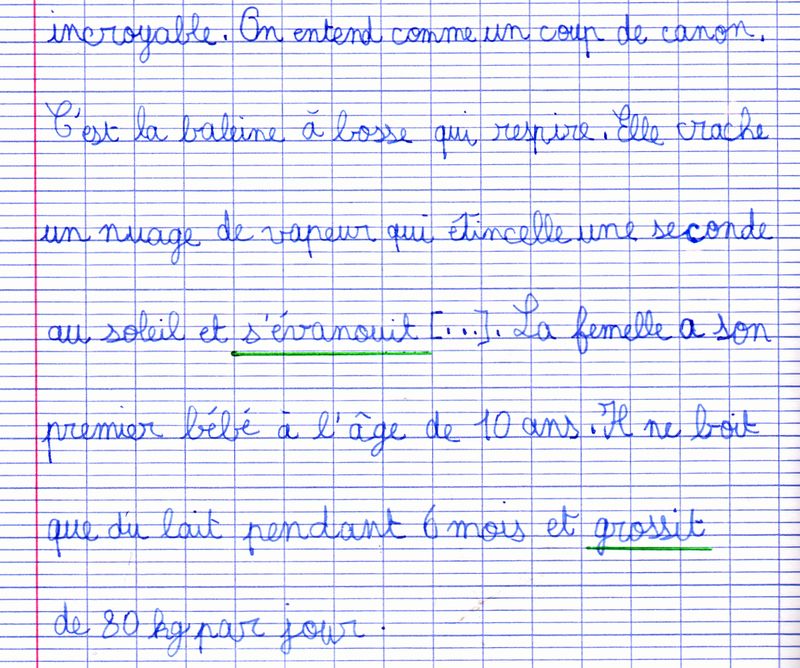 incroyable. On entend comme un coup de canon.
C'est la baleine à bosse qui respire. Elle crache
un nuage de vapeur qui étincelle une seconde
au soleil et s'évanouit [...]. La femelle a son
premier bébé à l'âge de 10 ans. Il ne boit
que du lait pendant 6 mois et grossit
de 80 kg par jour.